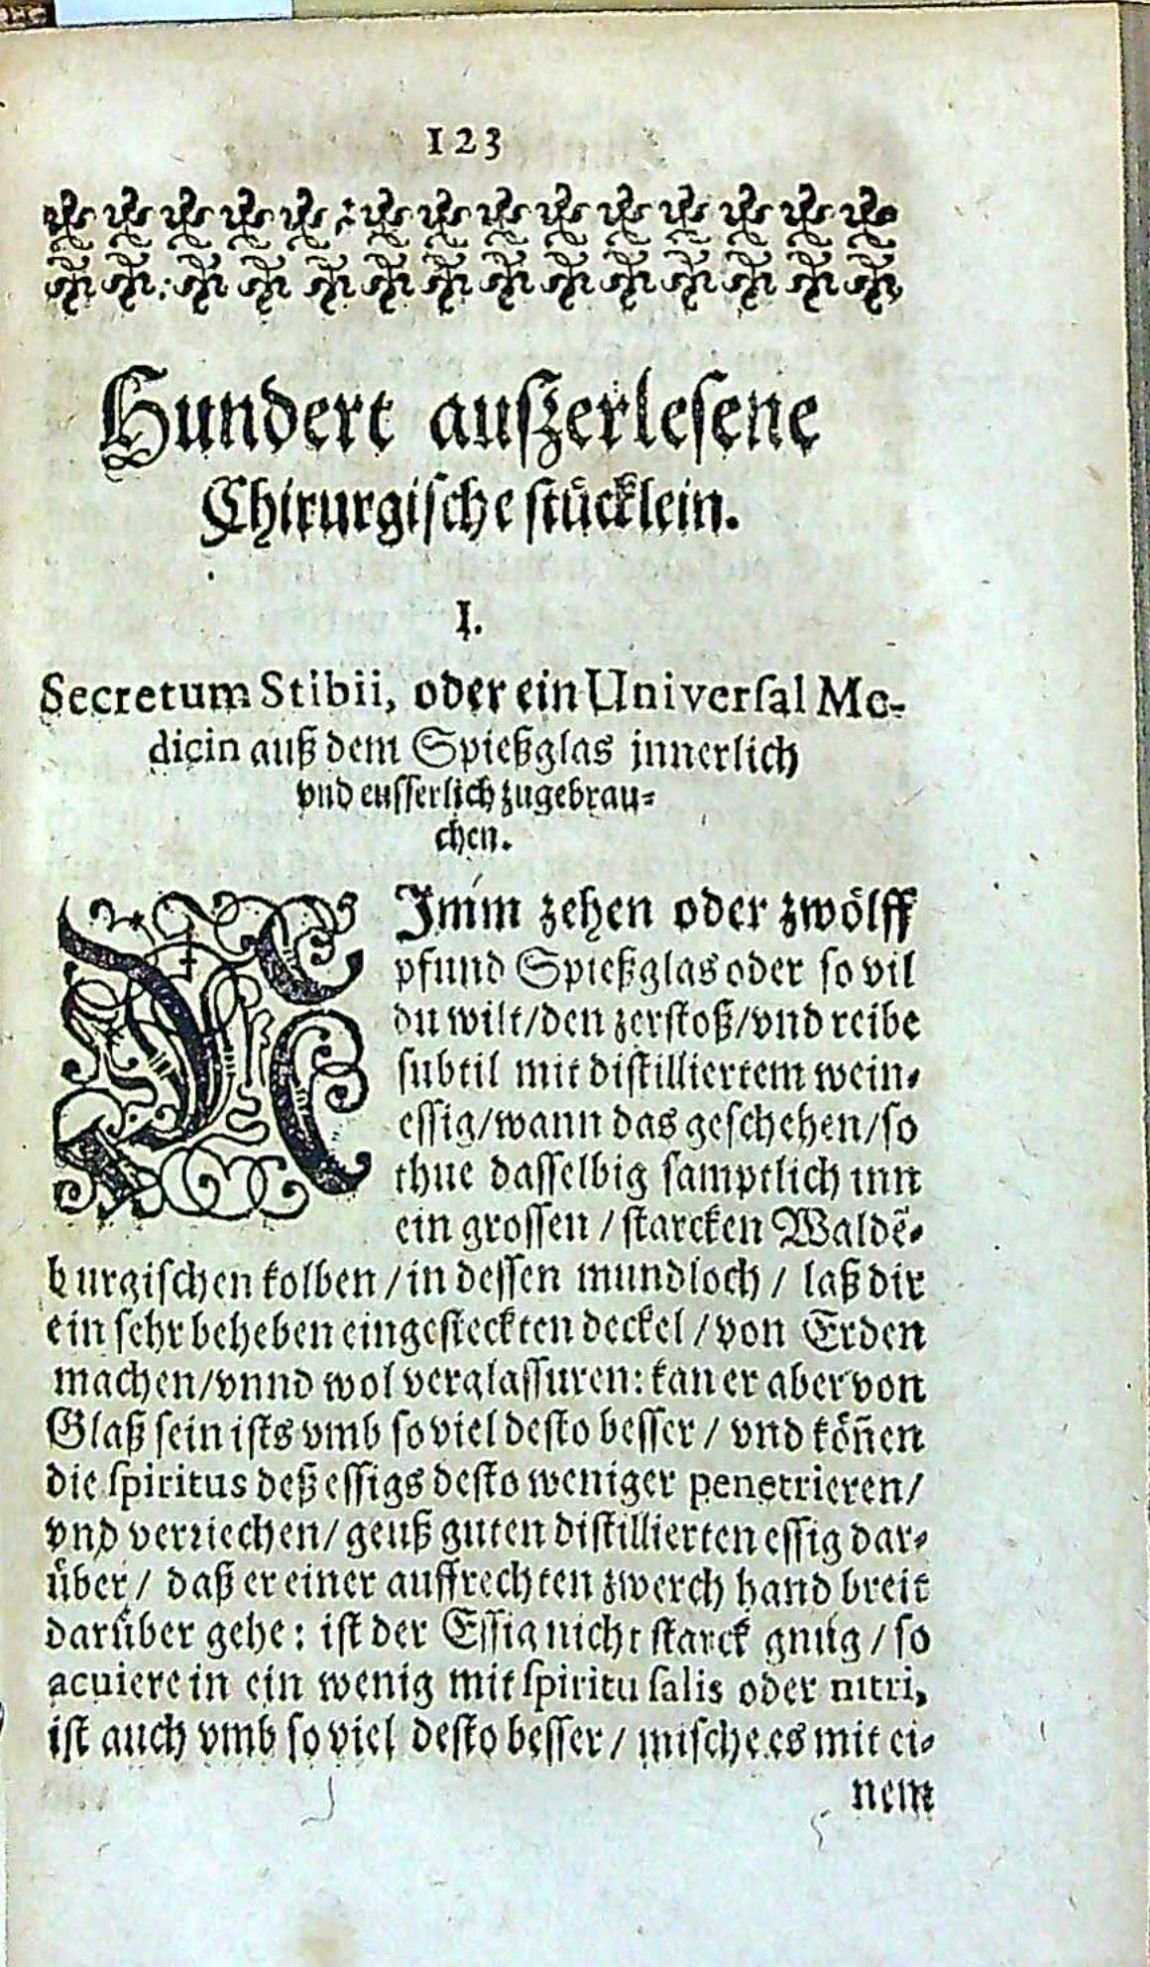 123
Hundert auſzerleſene
Chirurgiſche ſtuͤcklein.
I.
Secretum Stibii, oder ein Univerſal Me-
dicin auß dem Spießglas jnnerlich
vnd euſſerlich zugebrau-
chen.
NImm zehen oder zwoͤlff
pfund Spießglas oder ſo vil
du wilt/den zerſtoß/vnd reibe
ſubtil mit diſtilliertem wein-
eſſig/wann das geſchehen/ſo
thue daſſelbig ſamptlich inn
ein groſſen / ſtarcken Waldē-
burgiſchen kolben / in deſſen mundloch / laß dir
ein ſehr beheben eingeſteckten deckel / von Erden
machen/vnnd wol verglaſſuren: kan er aber von
Glaß ſein iſts vmb ſo viel deſto beſſer / vnd koͤn̄en
die ſpiritus deß eſſigs deſto weniger penetrieren/
vnd verriechen/ geuß guten diſtillierten eſſig dar-
uͤber / daß er einer auffrechten zwerch hand breit
daruͤber gehe: iſt der Eſſig nicht ſtarck gnug / ſo
acuiere in ein wenig mit ſpiritu ſalis oder nitri,
iſt auch vmb ſo viel deſto beſſer / miſche es mit ei-
nem